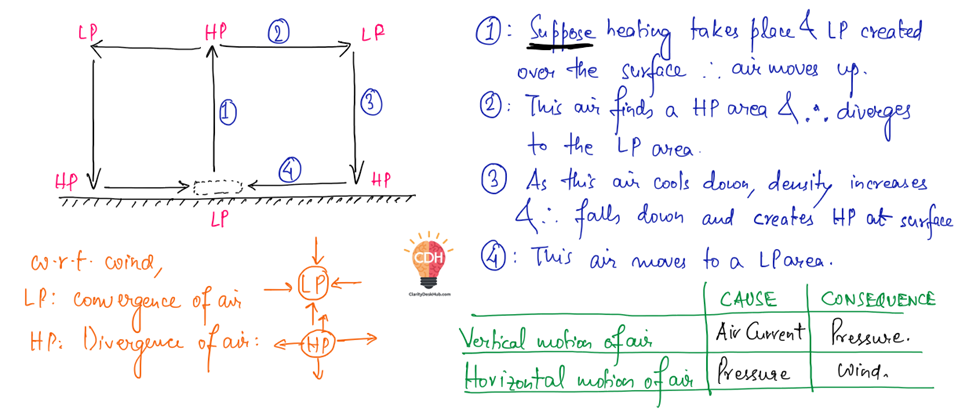 LP HP ② LP
① ③
HP ④ HP
LP
w.r.t. wind,
LP: Convergence of air
LP
HP: Divergence of air:
HP
CDH
ClarityDeskHub.com
①: Suppose heating takes place & LP created
over the surface ∴ air moves up.
②: This air finds a HP area & ∴ diverges
to the LP area.
③ As this air cools down, density increases
& ∴ falls down and creates HP at surface
④: This air moves to a LP area.
CAUSE CONSEQUENCE
Vertical motion of air Air Current Pressure.
Horizontal motion of air Pressure Wind.